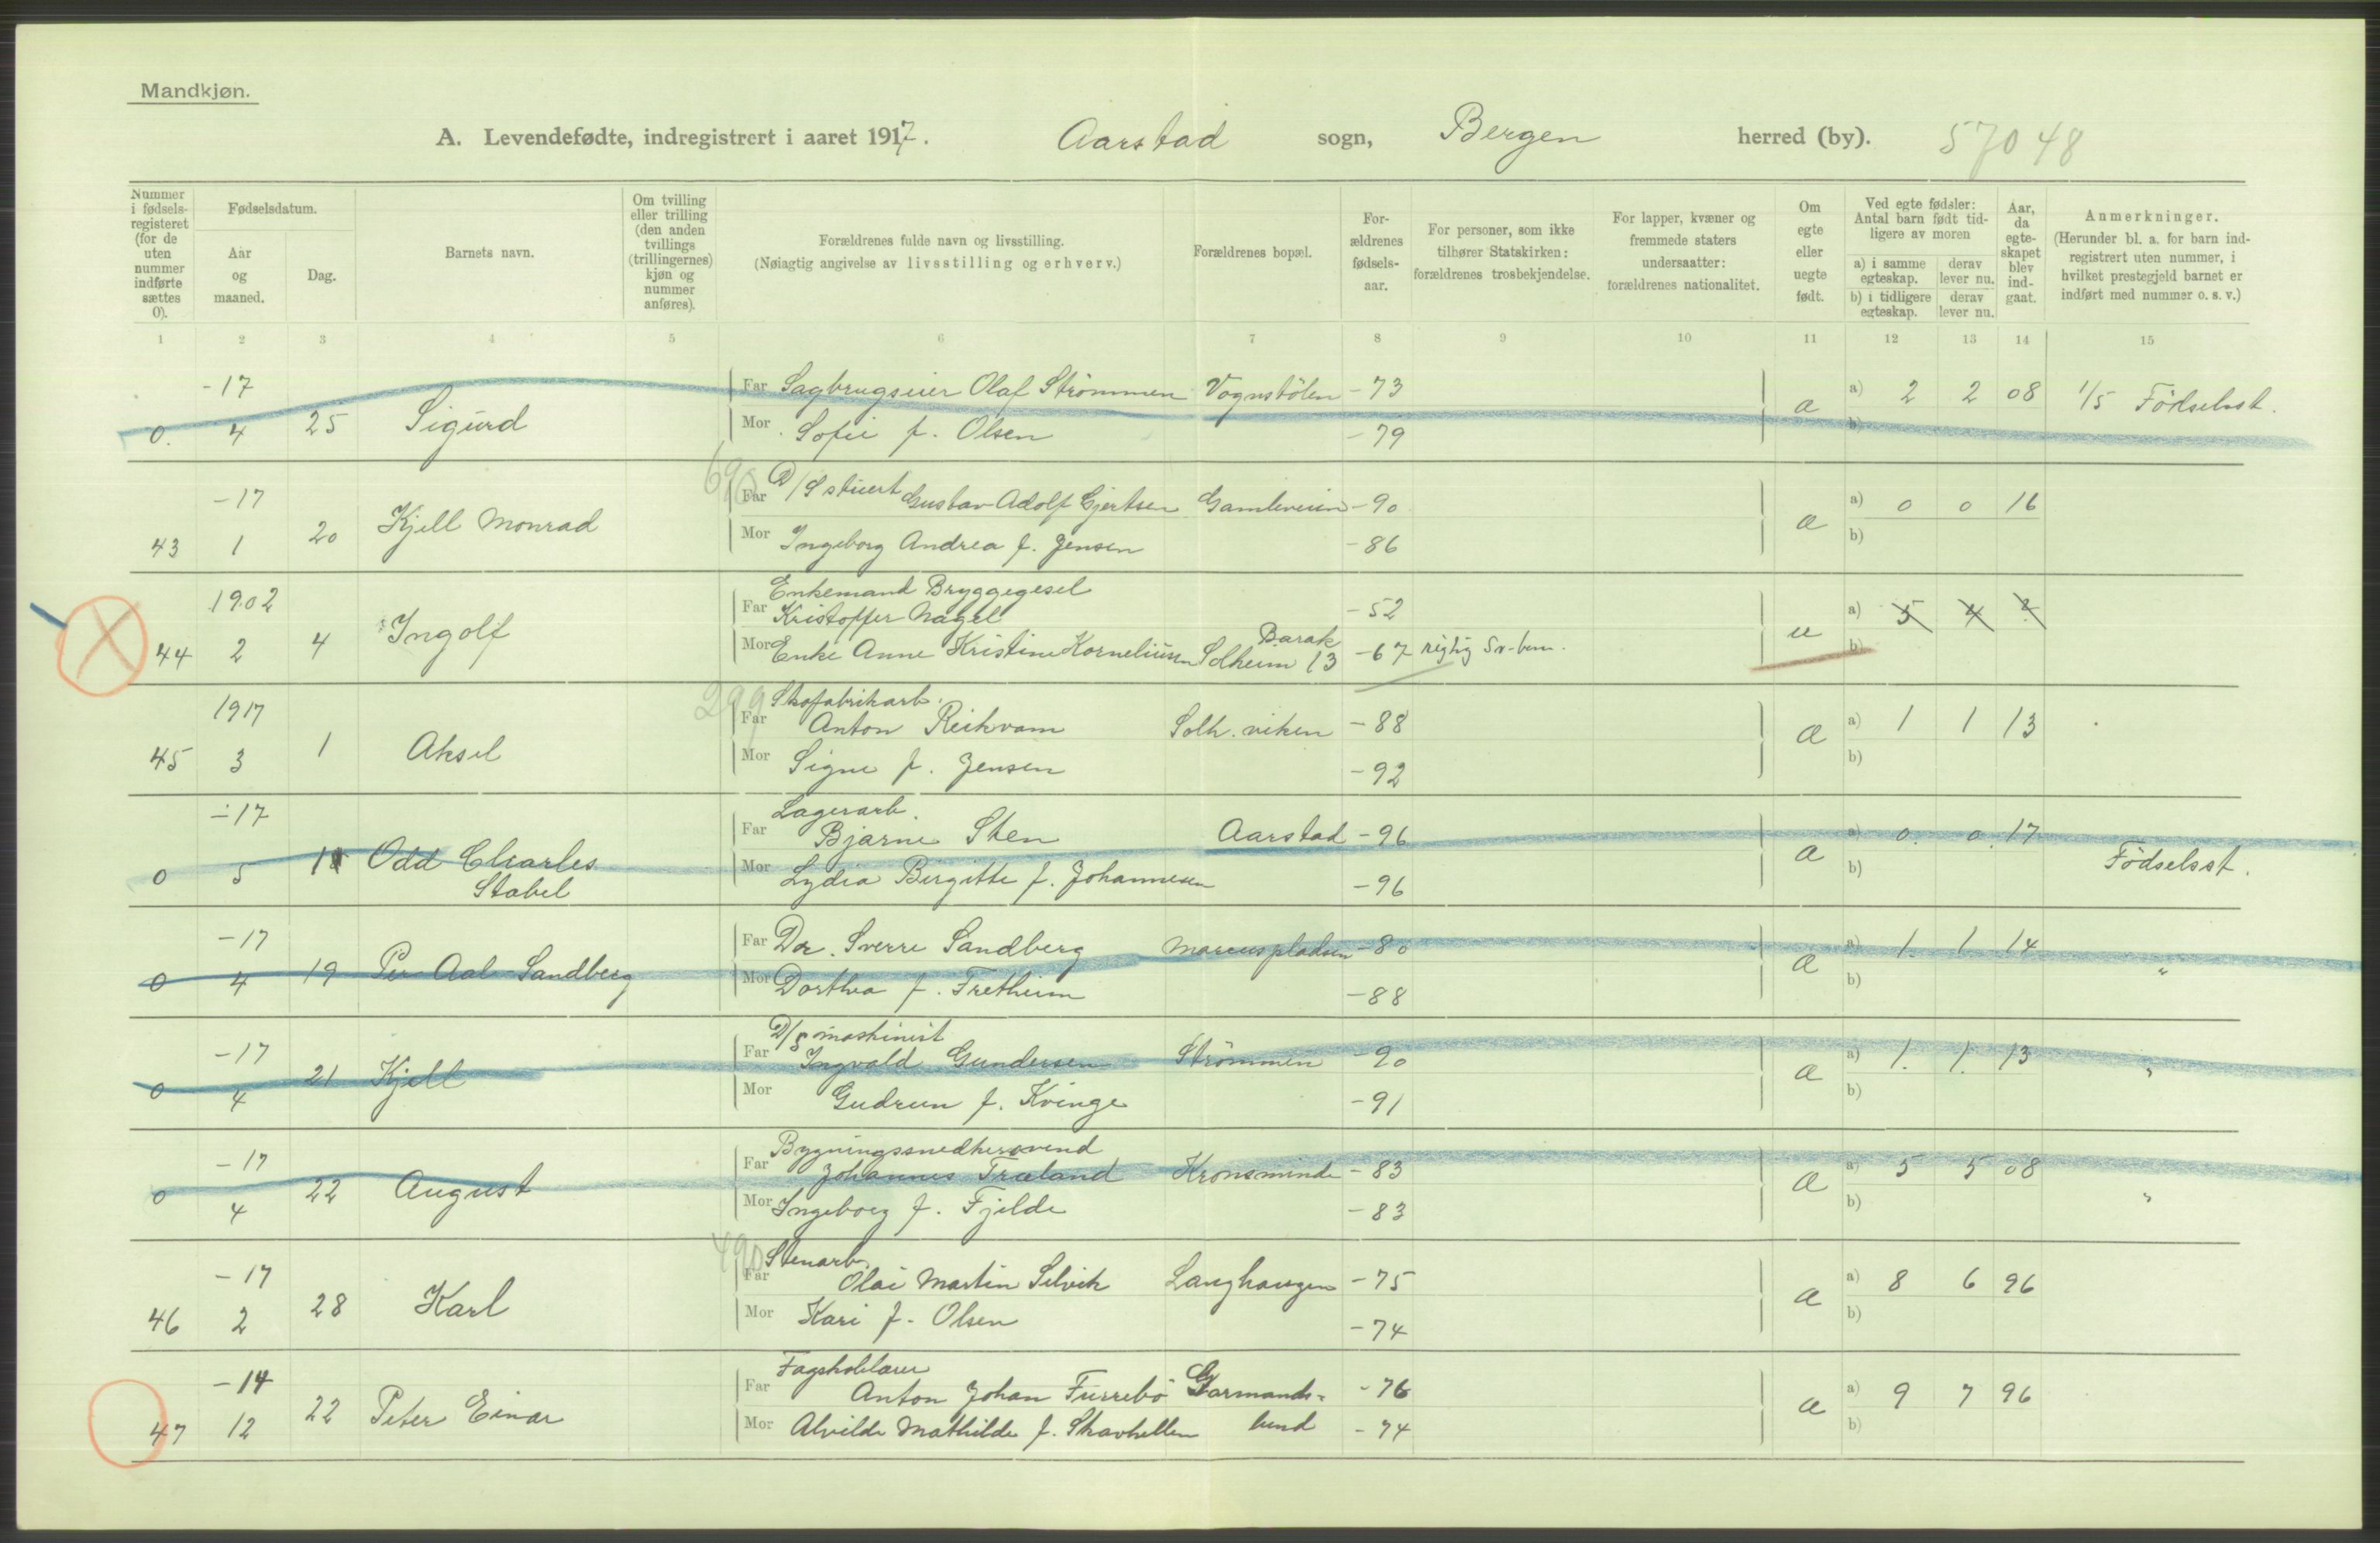 Mandkjøn.
A. Levendefødte, indregistrert i aaret 1917. Aarstad sogn, Bergen herred (by). 57048
Nummer i fødselsregisteret (for de uten nummer indførte sættes 0).
Fødselsdatum.
Aar og maaned.
Dag.
Barnets navn.
Om tvilling eller trilling (den anden tvillings (trillingernes) kjøn og nummer anføres).
Forældrenes fulde navn og livsstilling.
(Nøiagtig angivelse av livsstilling og erhverv.)
Forældrenes bopæl.
Forældrenes fødselsaar.
For personer, som ikke tilhører Statskirken: forældrenes trosbekjendelse.
For lapper, kvæner og fremmede staters undersaatter: forældrenes nationalitet.
Om egte eller uegte født.
Ved egte fødsler: Antal barn født tidligere av moren
a) i samme egteskap. derav lever nu.
b) i tidligere egteskap. derav lever nu.
Aar, da egteskapet blev indgaat.
Anmerkninger.
(Herunder bl. a. for barn indregistrert uten nummer, i hvilket prestegjeld barnet er indført med nummer o. s. v.)
1 2 3 4 5 6 7 8 9 10 11 12 13 14 15
-17 Far Sagbrugseier Olaf Strømmen Vognstölen -73 a) 2 2 08 1/5 Födselsst.
0. 4 25 Sigurd Mor Sofie f. Olsen -79 a b)
-17 Far D/S stuert Gustav Adolf Gjertsen Gamleveien -90 a) 0 0 16
43 1 20 Kjell Monrad Mor Ingeborg Andrea f. Jensen -86 a b)
Enkemand Bryggegesel
1902 Far Kristoffer Nagel -52 a) 5 4 2
44 2 4 Ingolf Mor Enke Anne Kristine Korneliusen Solheim Barak 13 -67 rigtig u b)
299 Skofabrikarb.
1917 Far Anton Reikvam Solh. viken -88 a) 1 1 13
45 3 1 Aksel Mor Signe f. Jensen -92 a b)
Lagerarb.
-17 Far Bjarne Sten Aarstad -96 a) 0. 0. 17
0 5 1 Odd Charles Stabel Mor Lydia Birgitte f. Johannesen -96 a b) Födselsst.
-17 Far Dr. Sverre Sandberg Marcuspladsen -80 a) 1. 1 14
0 4 19 Per Aal Sandberg Mor Dorthea f. Fretheim -88 a b) "
D/S maskinist
-17 Far Ingvald Gundersen Strömmen -90 a) 1. 1. 13
0 4 21 Kjell Mor Gudrun f. Kvinge -91 a b) "
Bygningssnedkersvend
-17 Far Johannes Træland Kronsminde -83 a) 5 5 08
0 4 22 August Mor Ingeborg f. Fjelde -83 a b) "
490 Stenarb.
-17 Far Olai Martin Selvik Langhaugen -75 a) 8 6 96
46 2 28 Karl Mor Kari f. Olsen -74 a b)
Fagskolelærer
-14 Far Anton Johan Furrebö Garmands- -76 a) 9 7 96
47 12 22 Peter Einar Mor Alvilde Mathilde f. Skavhellen lund -74 a b)